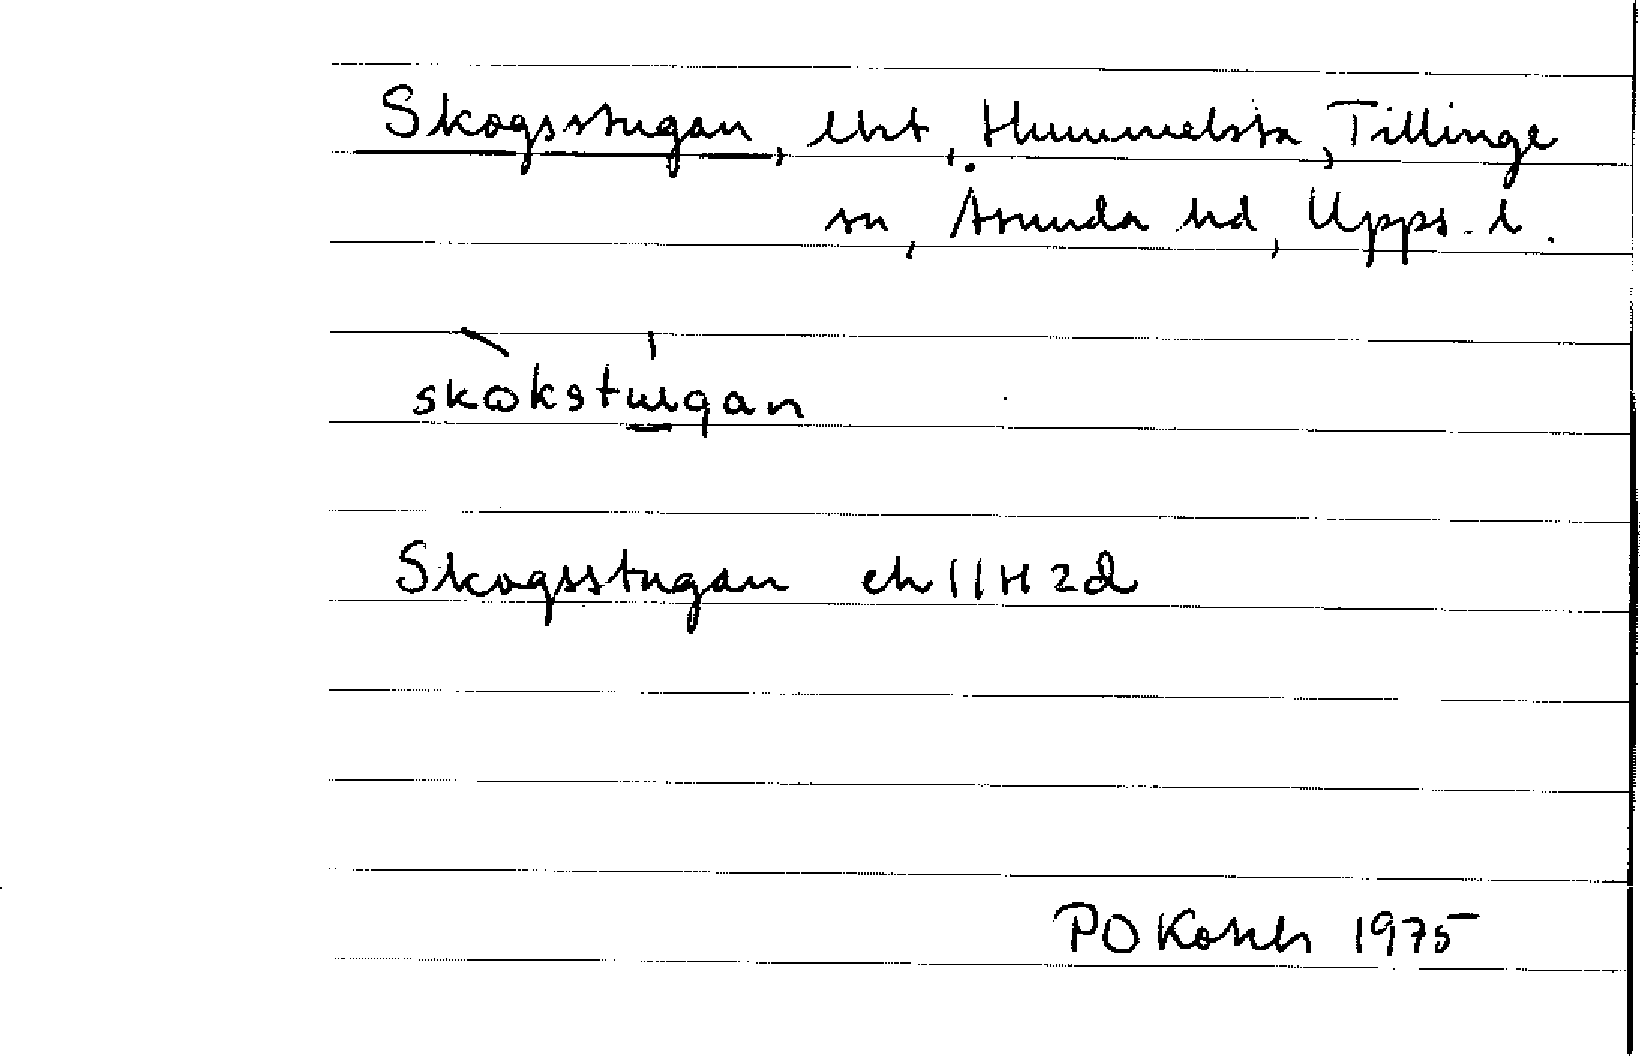 Skogsstugan, lht, Hummelsta, Tillinge
sn, Åsunda hd, Upps. l.
skokstugan
Skogsstugan ek 11H2d
PO 1975